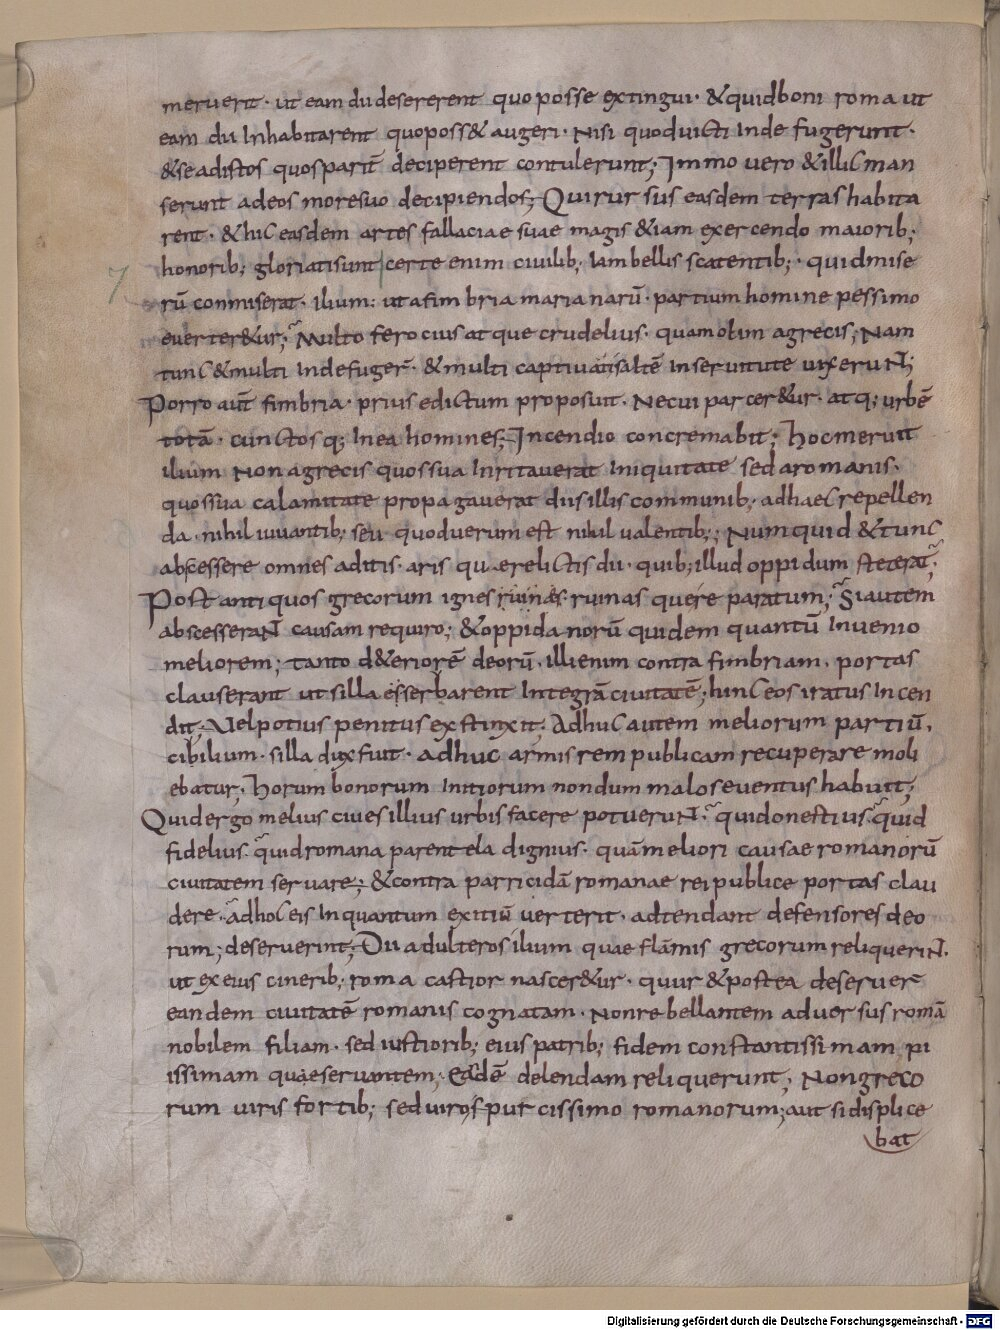 meruerit · ut eam dii desererent quo posse extingui · & quid boni roma ut
eam dii Inhabitarent quo poss& augeri · Nisi quod uicti Inde fugerunt ·
& se ad istos quos parit̄ deciperent contulerunt; Immo uero & illic man
serunt ad eos more suo decipiendos; Qui rursus easdem terras habita
rent · & hic easdem artes fallaciae suae magis & iam exercendo maiorib;
honorib; gloriati sunt certe enim ciuilib; Iam bellis scatentib; · quid mise
rū conmiserat · ilium : ut a fimbria marianarū · partium homine pessimo
euerter&ur; Multo ferocius atque crudelius · quam olim a grecis; Nam
tunc & multi Inde fuger̄ · & multi captiuati saltē In seruitute uixeruN;
Porro aut̄ fimbria · prius edictum proposuit · Necui parcer&ur · atq; urbē
totā · cunctosq; In ea homines; Incendio concremabit; Hoc meruit
ilium Non a grecis quos sua Inritauerat Iniquitate sed a romanis ·
quos sua calamitate propagauerat diis illis communib; adhaec repellen
da · nihil iuuantib; seu quod uerum est nihil ualentib;; Numquid & tunc
abscessere omnes aditis · aris que relictis dii · quib; illud oppidum steterat;
Post antiquos grecorum ignes ruinas · ruinas quere paratum; Si autem
abscesseraN causam requiro; & oppidanorū quidem quantū Inuenio
meliorem; tanto d&eriorē deorū · illi enim contra fimbriam · portas
clauserant ut silla esserbarent Integrā ciuitatē; hinc eos iratus Incen
dit; Vel potius penitus exstinxit; Adhuc autem meliorum partiū,
cibilium · silla dux fuit · adhuc armis rem publicam recuperare moli
ebatur; Horum bonorum Initiorum nondum malos euentus habuit;
Quid ergo melius ciues illius urbis facere potueruN · quid onestius quid
fidelius · quid romana parentela dignius · quā meliori causae romanorū
ciuitatem seruare; & contra parricidā romanae rei publice portas clau
dere · ad hoc eis Inquantum exitiū uerterit · adtendant defensores deo
rum; deseruerint; Dii adulteros ilium quae flāmis grecorum reliqueriN.
ut ex eius cinerib; roma castior nascer&ur · quur & postea deseruer̄
eandem ciuitatē romanis cognatam · Non rebellantem aduersus romā
nobilem filiam · sed iustiorib; eius patrib; fidem constantissimam pi
issimam quae seruantem; Eadē delendam reliquerunt; Non greco
rum uiris fortib; sed uiro spurcissimo romanorum; aut si displice
bat
7
Digitalisierung gefördert durch die Deutsche Forschungsgemeinschaft - DFG